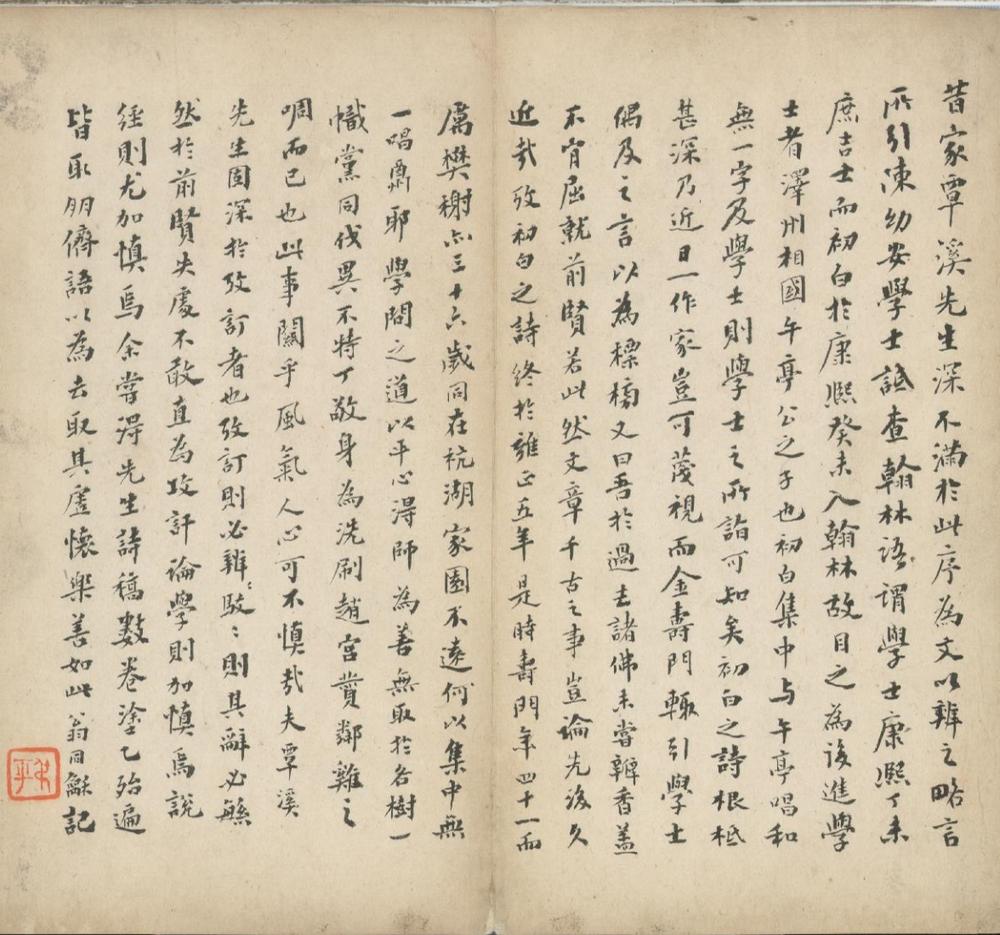 昔家覃溪先生深不滿於此序為文以辨之略言
所引陳幼安學士詆查翰林語謂學士康熙丁未
庶吉士而初白於康熙癸未入翰林故目之為後進學
士者澤州相國午亭公之子也初白集中与午亭唱和
無一字及學士則學士之所詣可知矣初白之詩根柢
甚深乃近日一作家豈可蔑視而金壽門輒引學士
偶及之言以為標榜又曰吾於過去諸佛未嘗瓣香蓋
不肯屈就前賢若此然文章千古之事豈論先後久
近哉攷初白之詩終於雍正五年是時壽門年四十一而
厲樊榭亦三十六歲同在杭湖家園不遠何以集中無
一唱酬耶學問之道以平心得師為善無取於各樹一
幟黨同伐異不特丁敬身為洗刷趙宮贊鄰雞之
啁而已也此事關乎風氣人心可不慎哉夫覃溪
先生固深於攷訂者也攷訂則必辨駁〻則其辭必緐
然於前賢失處不敢直為攻訐論學則加慎焉說
經則尤加慎焉余嘗得先生詩稿數卷塗乙殆遍
皆取朋儕語以為去取其虛懷樂善如此翁同龢記